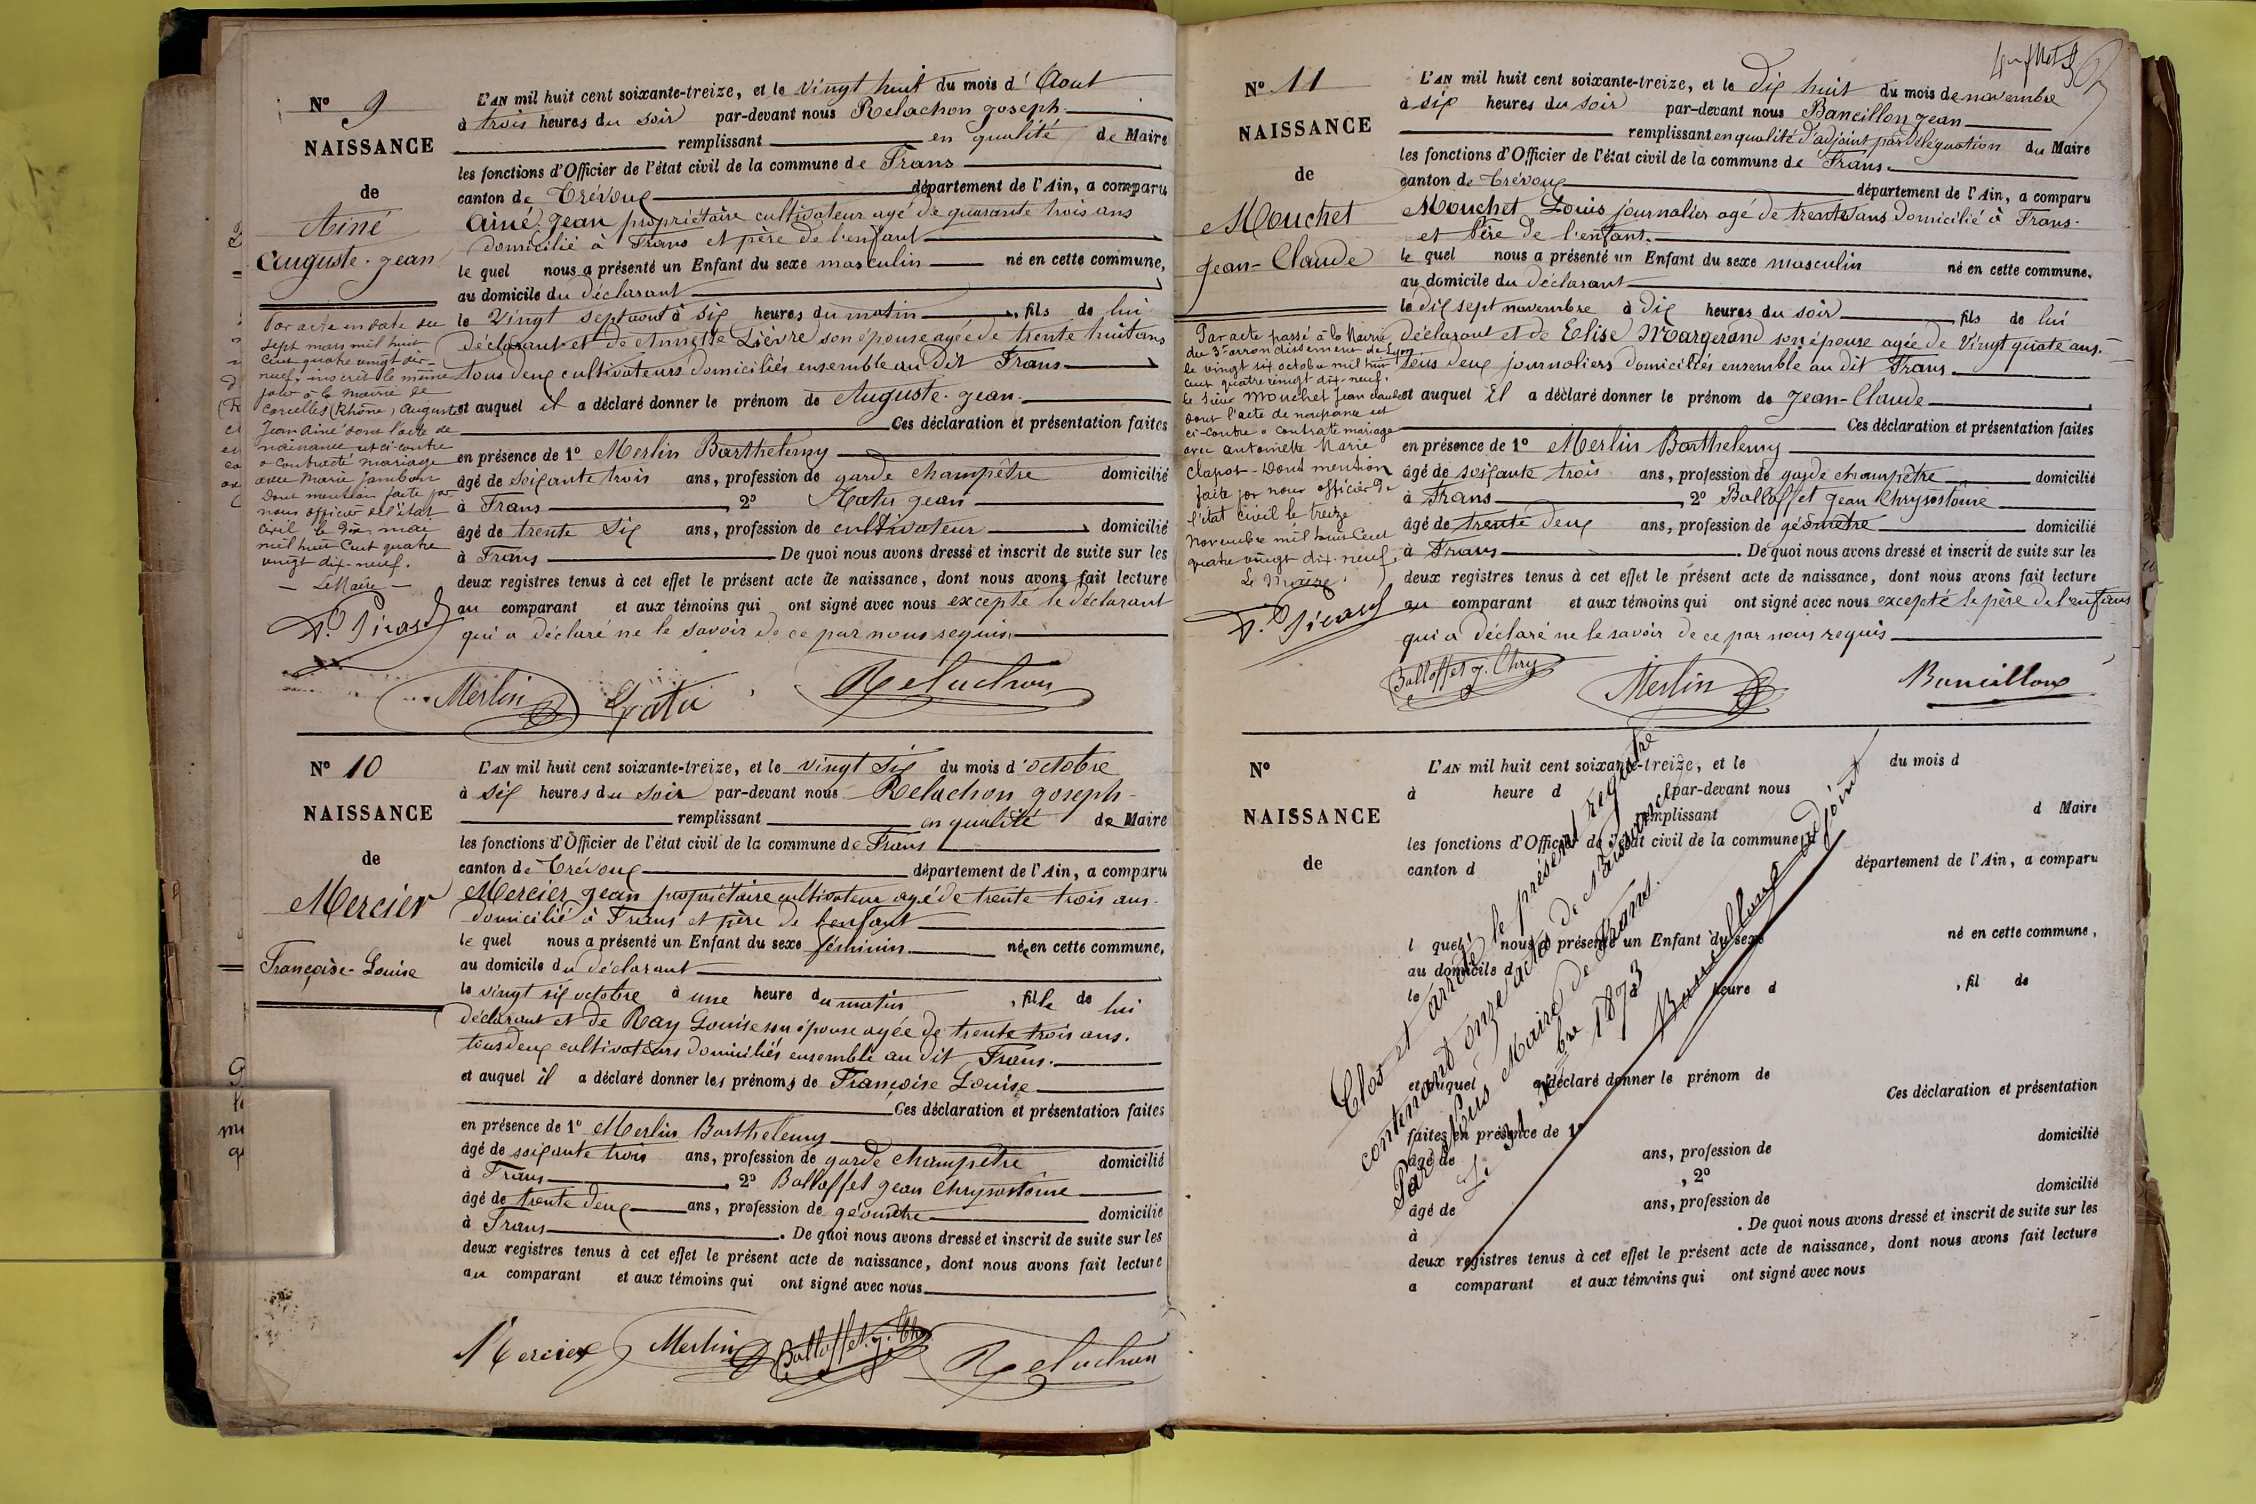 N° 9
NAISSANCE
de
Ainé
Auguste-Jean
Par acte en date du
sept mars mil huit
cent quatre vingt dix
neuf, inscrit le même
jour à la Mairie de
Corcelles (Rhône) Auguste
Jean Ainé dont l'acte de
naissance est ci-contre
a contracté mariage
avec Marie Jambon
Dont mention faite par
nous officier de l'état
civil le dix mai
mil huit cent quatre
vingt dix-neuf.
Le Maire
L'AN mil huit cent soixante-treize, et le vingt huit du mois d'Aout
à trois heures du soir par-devant nous Relachon Joseph
remplissant en qualité de Maire
les fonctions d'Officier de l'état civil de la commune de Frans
canton de Trévoux département de l'Ain, a comparu
Ainé Jean propriétaire cultivateur agé de quarante trois ans
domicilié à Frans et père de l'enfant
le quel nous a présenté un Enfant du sexe masculin né en cette commune,
au domicile du déclarant
le vingt sept aout à six heures du matin, fils de lui
déclarant et de Annette Lièvre son épouse agée de trente huit ans
tous deux cultivateurs domiciliés ensemble au dit Frans
et auquel il a déclaré donner le prénom de Auguste-Jean.
Ces déclaration et présentation faites
en présence de 1° Merlin Barthelemy
âgé de soixante trois ans, profession de garde champêtre domicilié
à Frans, 2° Jean
âgé de trente six ans, profession de cultivateur domicilié
à Frans De quoi nous avons dressé et inscrit de suite sur les
deux registres tenus à cet effet le présent acte de naissance, dont nous avons fait lecture
au comparant et aux témoins qui ont signé avec nous excepté le déclarant
qui a déclaré ne le savoir de ce par nous requis
Merlin Relachon
N° 10
NAISSANCE
de
Mercier
Françoise-Louise
L'AN mil huit cent soixante-treize, et le vingt six du mois d'octobre
à six heures du soir par-devant nous Relachon Joseph
remplissant en qualité de Maire
les fonctions d'Officier de l'état civil de la commune de Frans
canton de Trévoux département de l'Ain, a comparu
Mercier Jean propriétaire cultivateur agé de trente trois ans
domicilié à Frans et père de l'enfant
le quel nous a présenté un Enfant du sexe féminin née en cette commune,
au domicile du déclarant
le vingt six octobre à une heure du matin, fille de lui
déclarant et de Ray Louise son épouse agée de trente trois ans.
tous deux cultivateurs domiciliés ensemble au dit Frans.
et auquel il a déclaré donner les prénoms de Françoise Louise
Ces déclaration et présentation faites
en présence de 1° Merlin Barthelemy
âgé de soixante trois ans, profession de garde champêtre domicilié
à Frans, 2° Balloffet Jean Chrysostôme
âgé de trente deux ans, profession de géomètre domicilié
à Frans. De quoi nous avons dressé et inscrit de suite sur les
deux registres tenus à cet effet le présent acte de naissance, dont nous avons fait lecture
au comparant et aux témoins qui ont signé avec nous
Mercier Merlin Balloffet J. Chry Relachon
N° 11
NAISSANCE
de
Mouchet
Jean-Claude
Par acte passé à la Mairie
du 3e arrondissement de Lyon
le vingt six octobre mil huit
cent quatre vingt dix-neuf,
le sieur Mouchet Jean Claude
dont l'acte de naissance est
ci-contre a contracté mariage
avec Antoinette Marie
Clapot - Dont mention
faite par nous officier de
l'état civil le treize
Novembre mil huit Cent
quatre vingt dix-neuf.
Le Maire
L'AN mil huit cent soixante-treize, et le dix huit du mois de novembre
à six heures du soir par-devant nous Bancillon Jean
remplissant en qualité d'adjoint par délégation du Maire
les fonctions d'Officier de l'état civil de la commune de Frans.
canton de Trévoux département de l'Ain, a comparu
Mouchet Louis journalier agé de trente ans domicilié à Frans.
et Père de l'enfant.
le quel nous a présenté un Enfant du sexe masculin né en cette commune,
au domicile du déclarant
le dix sept novembre à dix heures du soir fils de lui
déclarant et de Elise Margerand son épouse agée de vingt quate ans.
tous deux journaliers domiciliés ensemble au dit Frans
et auquel il a déclaré donner le prénom de Jean-Claude
Ces déclaration et présentation faites
en présence de 1° Merlin Barthelemy
âgé de soixante trois ans, profession de garde champêtre domicilié
à Frans, 2° Balloffet Jean Chrysostôme
âgé de trente deux ans, profession de géomètre domicilié
à Frans. De quoi nous avons dressé et inscrit de suite sur les
deux registres tenus à cet effet le présent acte de naissance, dont nous avons fait lecture
au comparant et aux témoins qui ont signé avec nous excepté le père de l'enfant
qui a déclaré ne le savoir de ce par nous requis
Balloffet J. Chry Merlin Bancillon
N°
NAISSANCE
de
L'AN mil huit cent soixante-treize, et le du mois d
à heure d par-devant nous
remplissant d Maire
les fonctions d'Officier de l'état civil de la commune d
canton d département de l'Ain, a comparu
l quel nous a présenté un Enfant du sexe né en cette commune,
au domicile d
le à heure d, fil de
et auquel a déclaré donner le prénom de
Ces déclaration et présentation
faites en présence de 1°
âgé de ans, profession de domicilié
, 2°
âgé de ans, profession de domicilié
à . De quoi nous avons dressé et inscrit de suite sur les
deux registres tenus à cet effet le présent acte de naissance, dont nous avons fait lecture
a comparant et aux témoins qui ont signé avec nous
Clos et arrêté le présent registre
contenant onze actes de Naissance
Par Nous Maire de Frans.
Le 31 Xbre 1873
adjoint